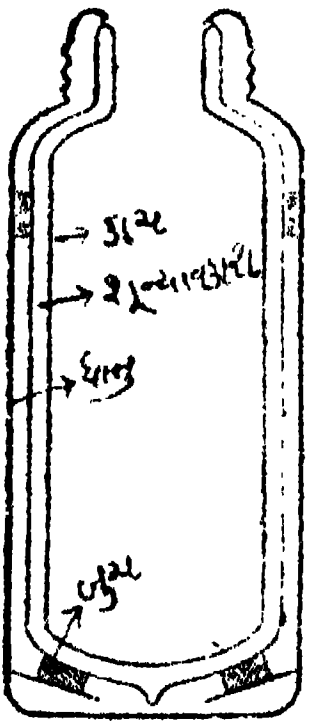 કાચ
શૂન્યાવકાશ
ધાતુ
બુચ